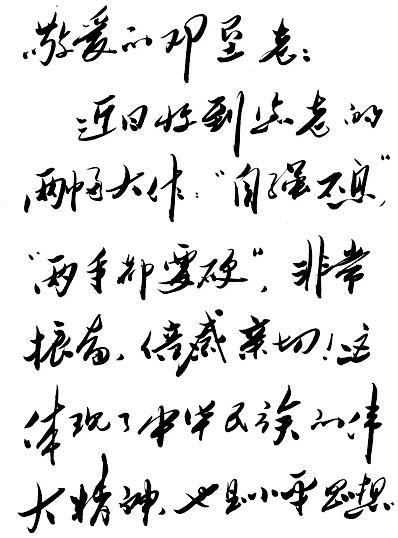 敬爱的邓垦老：
近日收到您老的
两幅大作：“自强不息”，
“两手都要硬”，非常
振奋，倍感亲切！这
体现了中华民族的伟
大精神，也是小平思想